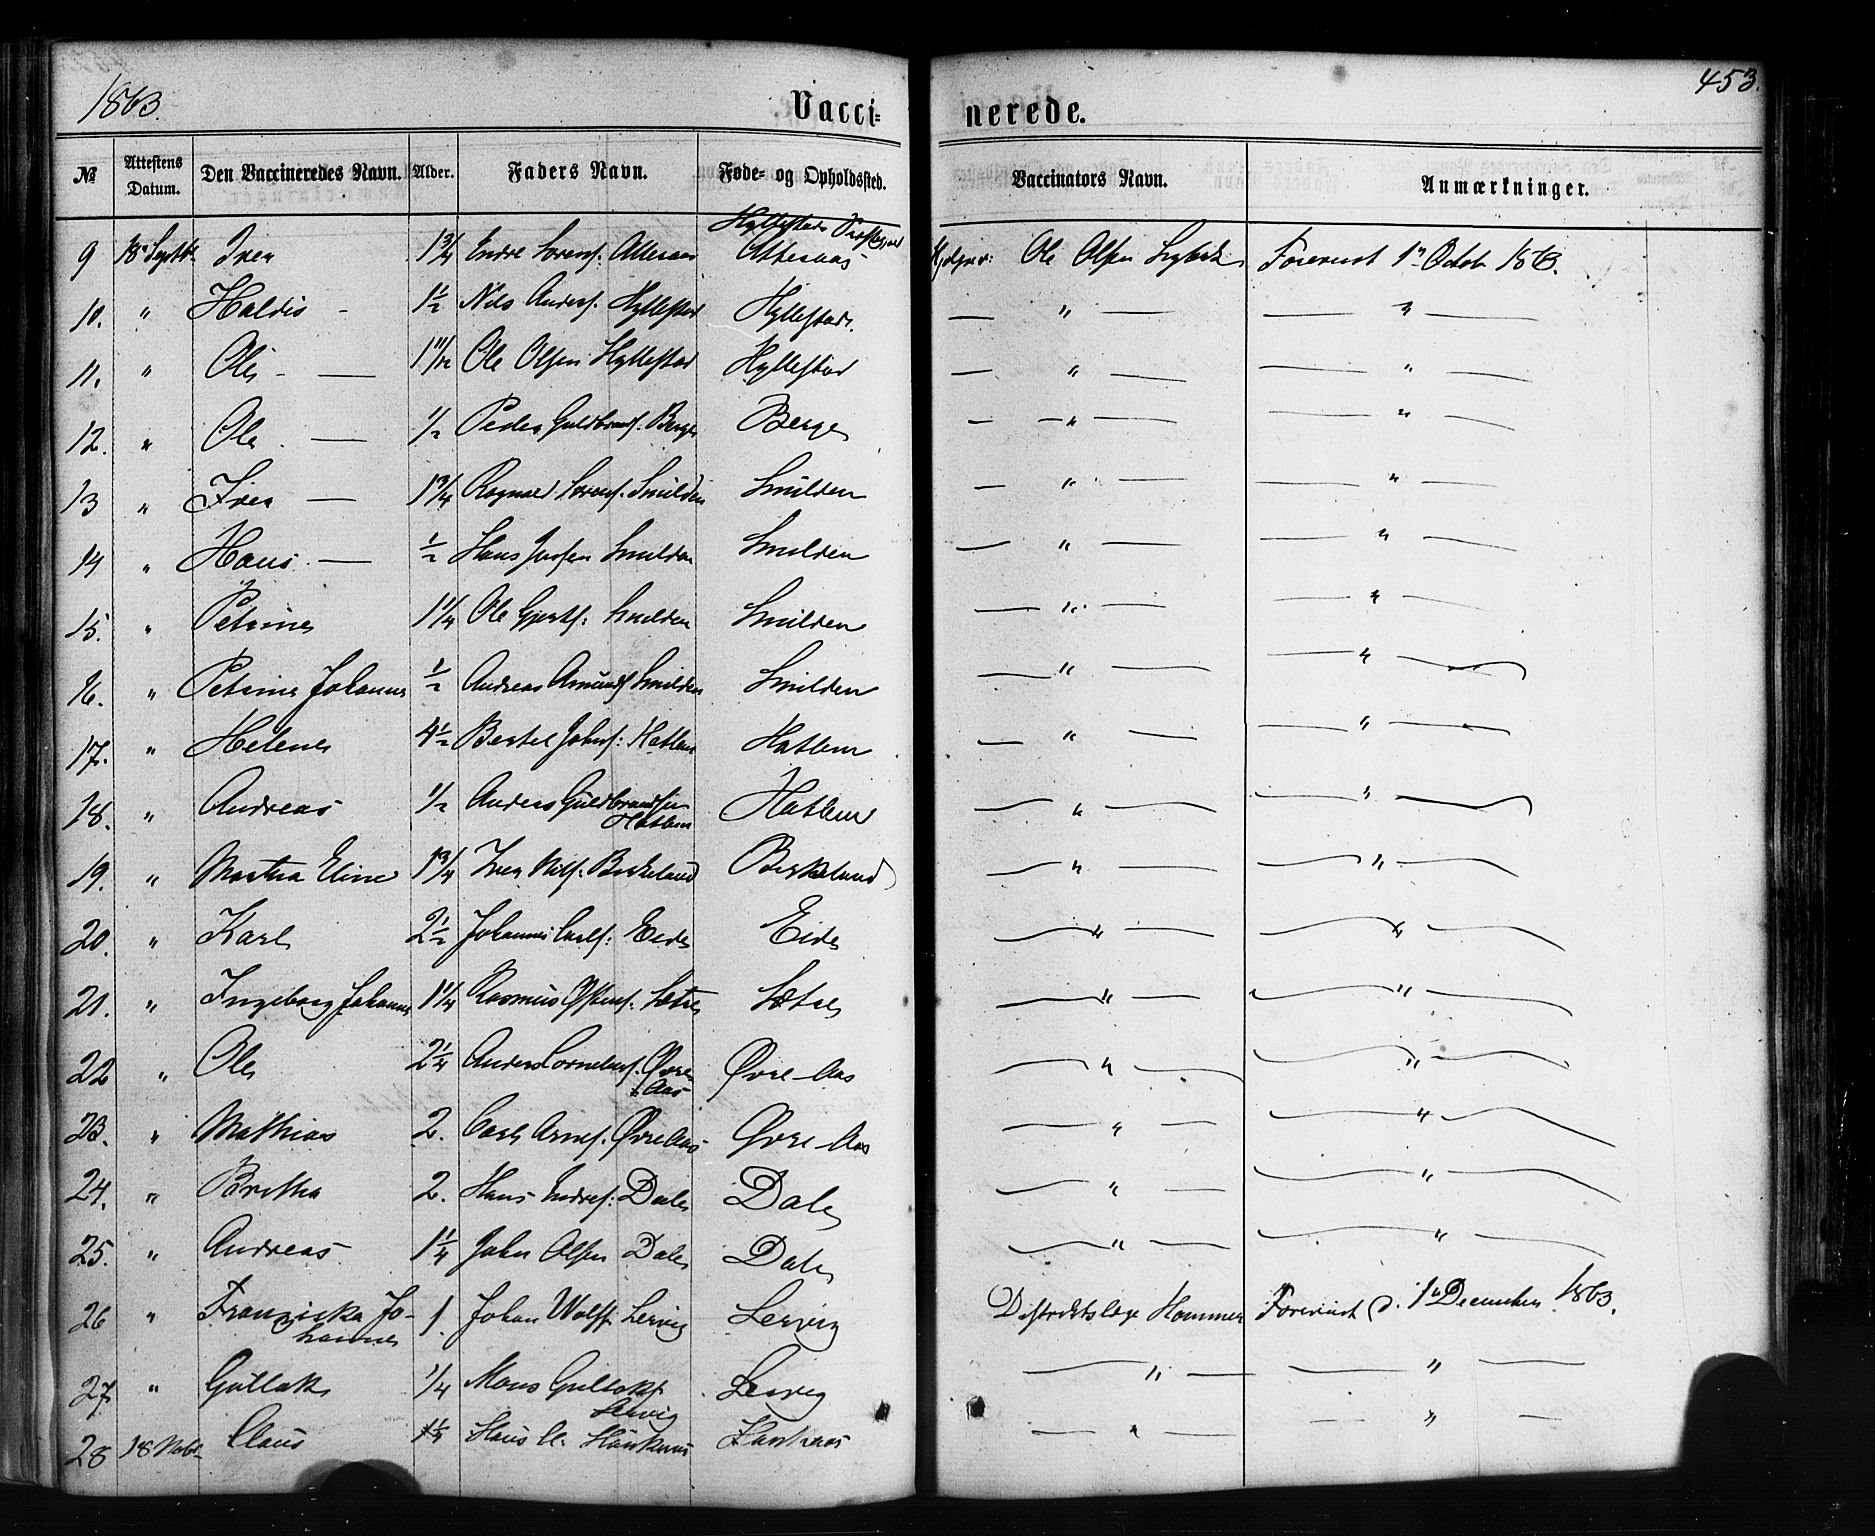 1863.
453.
Vacci-
nerede.
№ Attestens Datum. Den Vaccineredes Navn. Alder. Faders Navn. Føde- og Opholdssted. Vaccinators Navn. Anmærkninger.
Hyllestads
9 18 Septbr Iver 1 3/4 Endre Attesaas Ole Olsen Foreviist 1n Octob 1863.
10. " Haldis - 1 1/2 Nils Anders. Hyllestad Hyllestad. — " — — " —
11. " Ole - — 1 11/12 Ole Olsen Hyllestad Hyllestad — " — — " —
12. " Ole — 1/2 Peder Guldbrands. Berge Berge — " — — " —
13 " Iver — 1 3/4 Ragnald Sørens. Smilden Smilden — " — — " —
14 " Hans — 1/2 Hans Smilden Smilden — " — — " —
15. " Petrine 1 1/4 Ole Gjerts: Smilden Smilden — " — — " —
16. " Petrine Johanne 1/2 Andreas Amunds Smilden Smilden — " — — " —
17. " Helene 4 1/2 Bertel Johns: Hatlem Hatlem — " — — " —
18. " Andreas 1/2 Anders Guldbrandsen Hatlem — " — — " —
Hatlem
19. " Martha Eline 1 3/4 Iver Nils. Birkeland Birkeland — " — — " —
20. " Karl 2 1/2 Johannes Carls: Eide Eide — " — — " —
21. " Ingeborg Johanne 1 1/4 Rasmus Sætre Sætre — " — — " —
22 " Ole 2 1/4 Anders Cornelius. Øvre- Øvre-Aas — " — — " —
Aas
23. " Mathias 2. Carl Arnes. Øvre Aas Øvre-Aas — " — — " —
24. " Britha 2. Hans Endres: Dale Dale — " — — " —
25. " Andreas 1 1/4 John Olsen Dale Dale — " — — " —
26 " Franziska Jo- 1. Johan Wolff Lervig Lervig Districtslæge Hammer Foreviist d. 1n December 1863.
hanne
27. " Gullak 1/4 Mons Gullaks. Lervig — " — — " —
Lervig
28 18 Claus 1 1/4 Hans — " — — " —